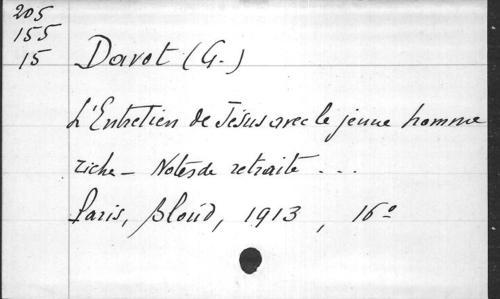 205
155
15
Davot (G.)
L'Entretien de Jésus avec le jeune homme
riche - Notes de retraite ...
Paris, Bloud, 1913, 16º